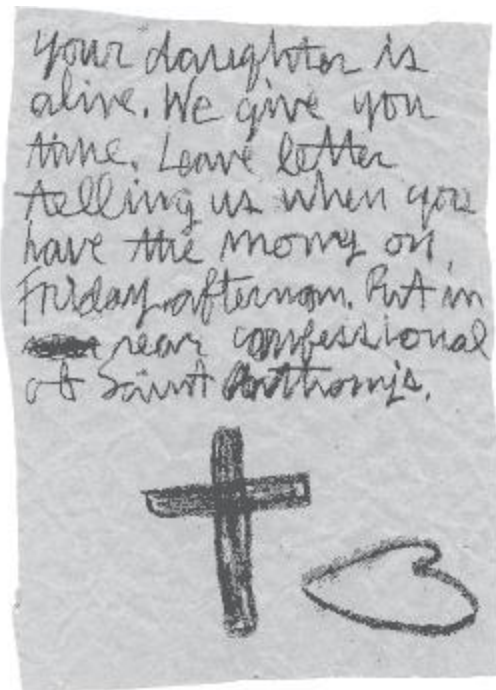 Your daughter is
alive. We give you
time. Leave letter
telling us when you
have the money on
Friday afternoon. Put in
rear confessional
at Saint Anthony's.